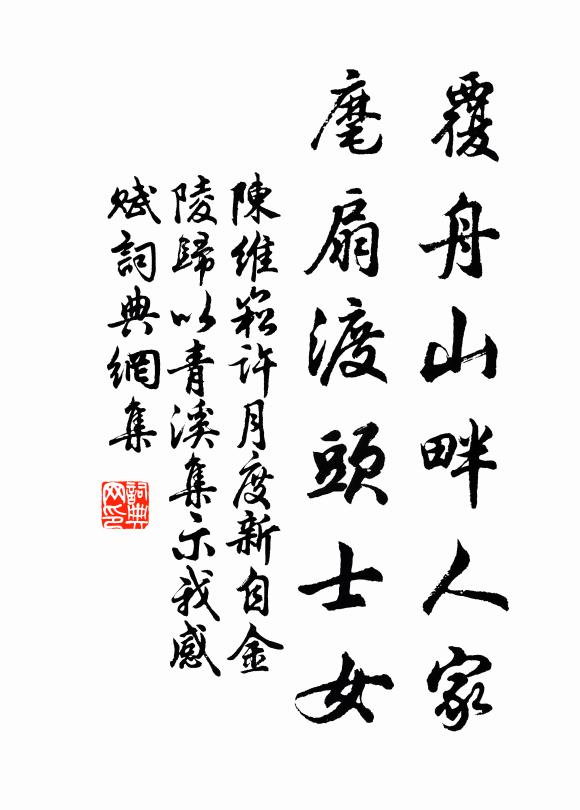 覆舟山畔人家
麾扇渡頭士女
陳維崧許月度新自金
陵歸以青溪集示我感
賦詞典網集
詞典
网印